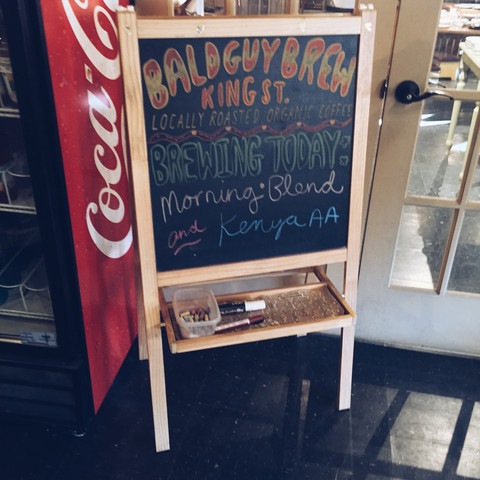 BALD GUY BREW
KING ST.
LOCALLY ROASTED ORGANIC COFFEE
BREWING TODAY:
Morning Blend
and Kenya AA
Coca-Co